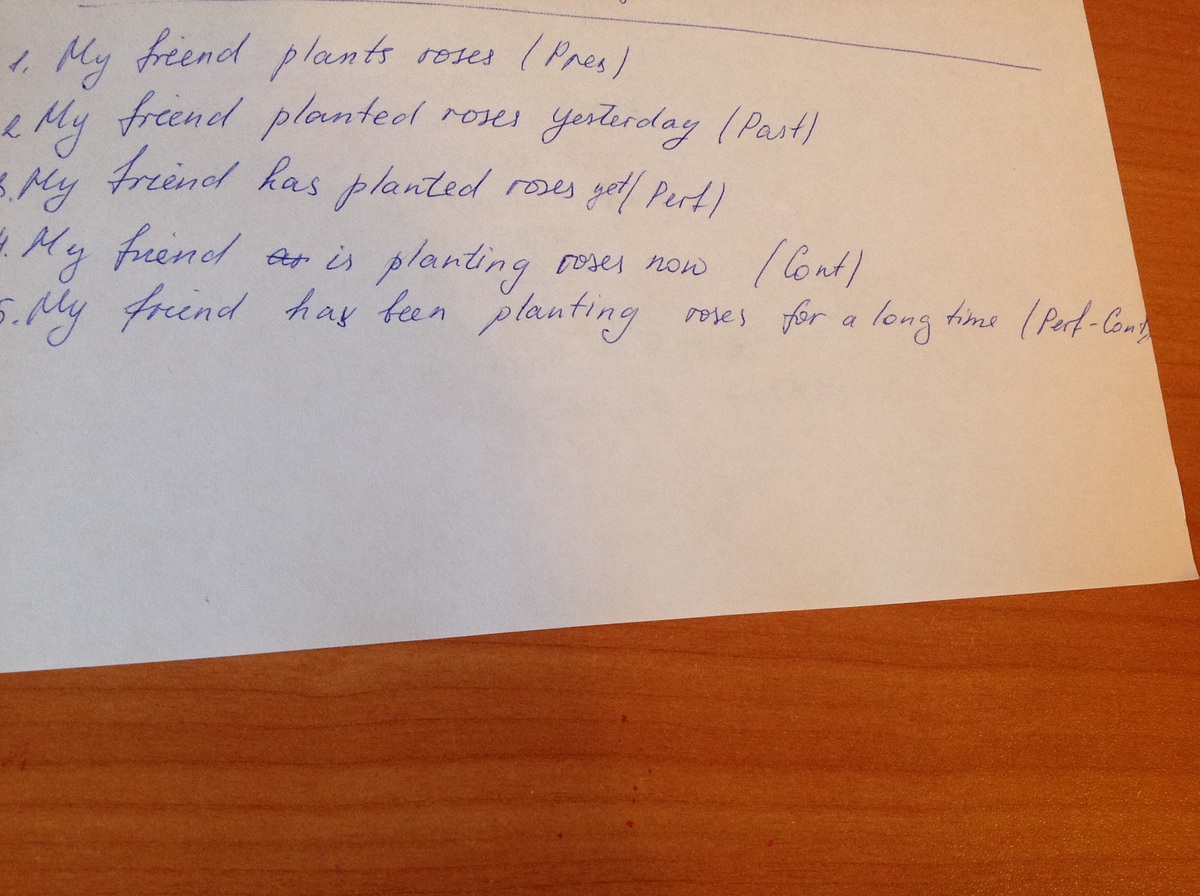 1. My friend plants roses (Pres)
2 My friend planted roses yesterday (Past)
3. My friend has planted roses yet (Perf)
4. My friend is planting roses now (Cont)
5. My friend has been planting roses for a long time (Perf-Cont)